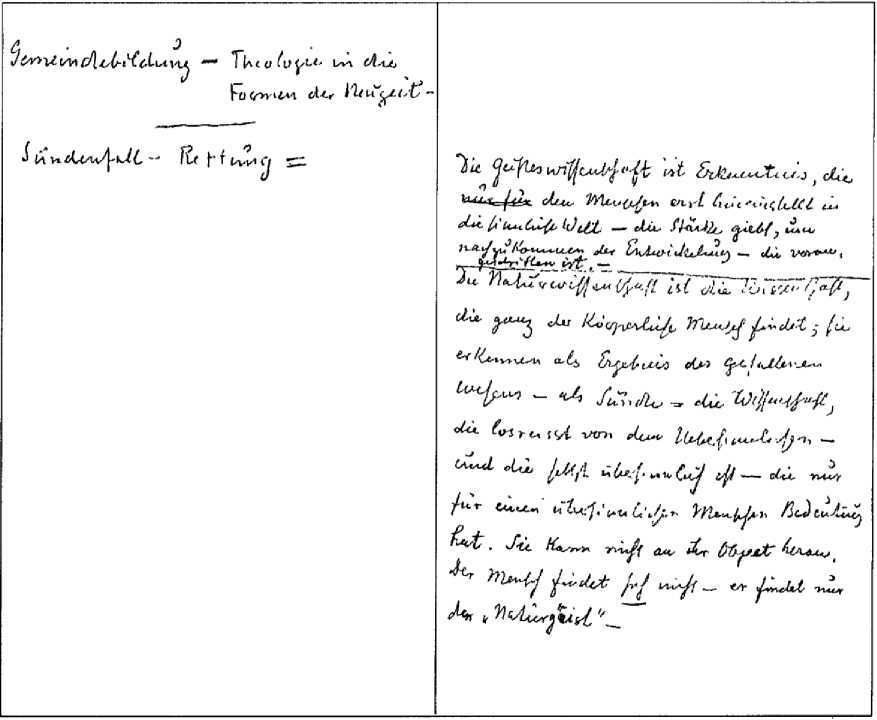 Gemeindebildung – Theologie in die
Formen der Neuzeit –
Sündenfall – Rettung =
Die Geisteswissenschaft ist Erkenntnis, die
nur für den Menschen erst hineinstellt in
die sinnliche Welt – die Stärke giebt, um
nachzukommen der Entwickelung – die voran,
geschritten ist. –
Die Naturwissenschaft ist die Wissenschaft,
die ganz der Körperliche Mensch findet; sie
erkennen als Ergebnis des gefallenen
Wesens – als Sünde = die Wissenschaft,
die losreisst von dem Uebersinnlichen –
und die selbst übersinnlich ist – die nur
für einen übersinnlichen Menschen Bedeutung
hat. Sie kann nicht an ihr Object heran.
Der Mensch findet sich nicht – er findet nur
den „Naturgeist“ –